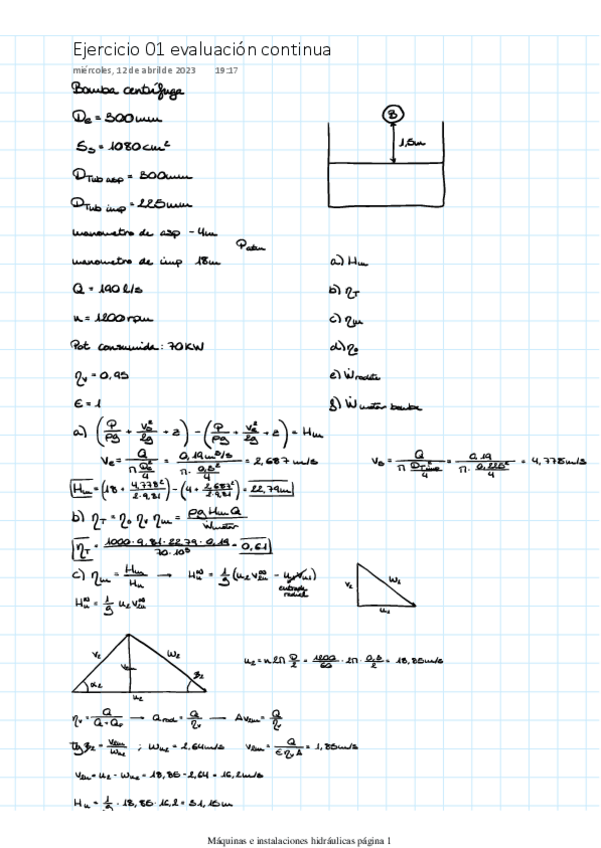 Ejercicio 01 evaluación continua
miércoles, 12 de abril de 2023 19:17
Bomba centrífuga
De = 300mm
Ss = 1080cm²
B
1,5m
DTub asp = 300mm
DTub imp = 225mm
manometro de asp -4m
Patm
manometro de imp 18m
a) Hm
Q = 190 l/s
b) ηT
n = 1200rpm
c) ηm
Pot consumida: 70KW
d) ηo
ηv = 0,95
e) Ẇrodete
ε = 1
f) Ẇmotor bomba
a) (P/ρg + Vs²/2g + z) - (P/ρg + Ve²/2g + z) = Hm
Ve = Q/(π De²/4) = 0,19m³/s/(π · 0,3²/4) = 2,687 m/s
Vs = Q/(π DTimp²/4) = 0,19/(π · 0,225²/4) = 4,778m/s
Hm = (18 + 4,778²/2·9,81) - (4 + 2,687²/2·9,81) = 22,79m
b) ηT = ηo ηv ηm = ρg Hm Q/Ẇmotor
ηT = 1000 · 9,81 · 22,79 · 0,19/70·10³ = 0,61
c) ηm = Hm/Hu → Hu∞ = 1/g (u2 V2u∞ - u1 V1u)
entrada radial
Hu∞ = 1/g u2 V2u∞
V1
W1
u1
V2
W2
α2
β2
u2
u2 = n 2π D/2 = 1200/60 · 2π · 0,3/2 = 18,85m/s
ηv = Q/Q+Qf → Qrod = Q/ηv → A V2m = Q/ηv
tg β2 = V2m/Wu2 ; Wu2 = 2,64m/s V2m = Q/ε ηv A = 1,85m/s
V2u = u2 - Wu2 = 18,85 - 2,64 = 16,2m/s
Hu = 1/g · 18,85 · 16,2 = 31,15m
Máquinas e instalaciones hidráulicas página 1